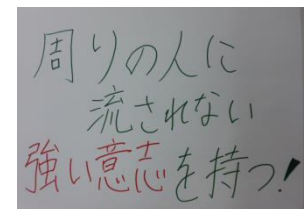 周りの人に
流されない
強い意志を持つ!